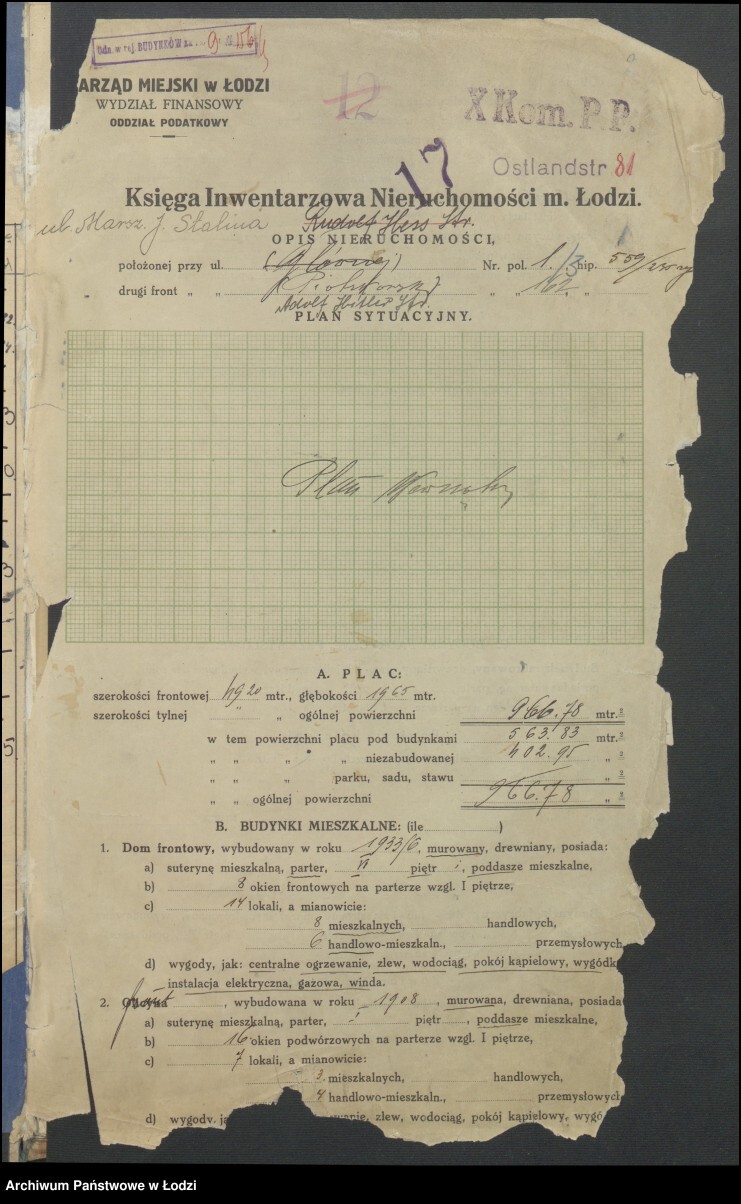 ARZĄD MIEJSKI w ŁODZI
WYDZIAŁ FINANSOWY
ODDZIAŁ PODATKOWY
12
X Kom. P. P.
17
Ostlandstr 81
Księga Inwentarzowa Nieruchomości m. Łodzi.
ul. Marsz. J. Stalina Rudolf Hess Str.
OPIS NIERUCHOMOŚCI,
położonej przy ul. (Głównej) Nr. pol. 1/3 hip. 559
drugi front " " (Piotrkowska) " " 162 "
Adolf Hitler Str.
PLAN SYTUACYJNY.
Plan
A. PLAC:
szerokości frontowej 49 20 mtr., głębokości 1965 mtr.
szerokości tylnej " " ogólnej powierzchni 966.78 mtr.²
w tem powierzchni placu pod budynkami 563.83 mtr.²
" " " " niezabudowanej 402.95 " ²
" " " parku, sadu, stawu " ²
" " ogólnej powierzchni 966.78 " ²
B. BUDYNKI MIESZKALNE: (ile )
1. Dom frontowy, wybudowany w roku 1933/6, murowany, drewniany, posiada:
a) suterynę mieszkalną, parter, VI piętr , poddasze mieszkalne,
b) 8 okien frontowych na parterze wzgl. I piętrze,
c) 14 lokali, a mianowicie:
8 mieszkalnych, handlowych,
6 handlowo-mieszkaln., przemysłowych
d) wygody, jak: centralne ogrzewanie, zlew, wodociąg, pokój kąpielowy, wygódk
instalacja elektryczna, gazowa, winda.
2. Oficyna front , wybudowana w roku 1908, murowana, drewniana, posiada
a) suterynę mieszkalną, parter, piętr , poddasze mieszkalne,
b) 16 okien podwórzowych na parterze wzgl. I piętrze,
c) 7 lokali, a mianowicie:
3 mieszkalnych, handlowych,
4 handlowo-mieszkaln., przemysłowych
d) wygody, ja wanie, zlew, wodociąg, pokój kąpielowy, wygó
Archiwum Państwowe w Łodzi